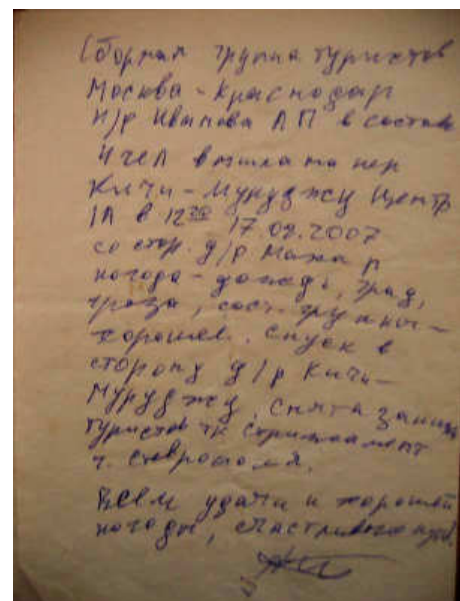 Сборная группа туристов
Москва - Краснодар
п/р Иванова А П в составе
4 чел вышла на пер
Кичи - Муруджу Центр
1А в 12 17.08.2007
со стор. д/р Махар
погода - дождь, град,
гроза, сост. группы -
хорошее. Спуск в
сторону д/р Кичи -
Муруджу, снята записка
туристов тк
г. Ставрополя.
Всем удачи и хорошей
погоды, счастливого пути.